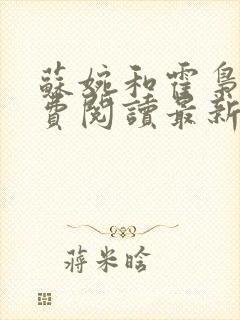 蘇婉和霍梟
費閱讀最新
蔣米晗